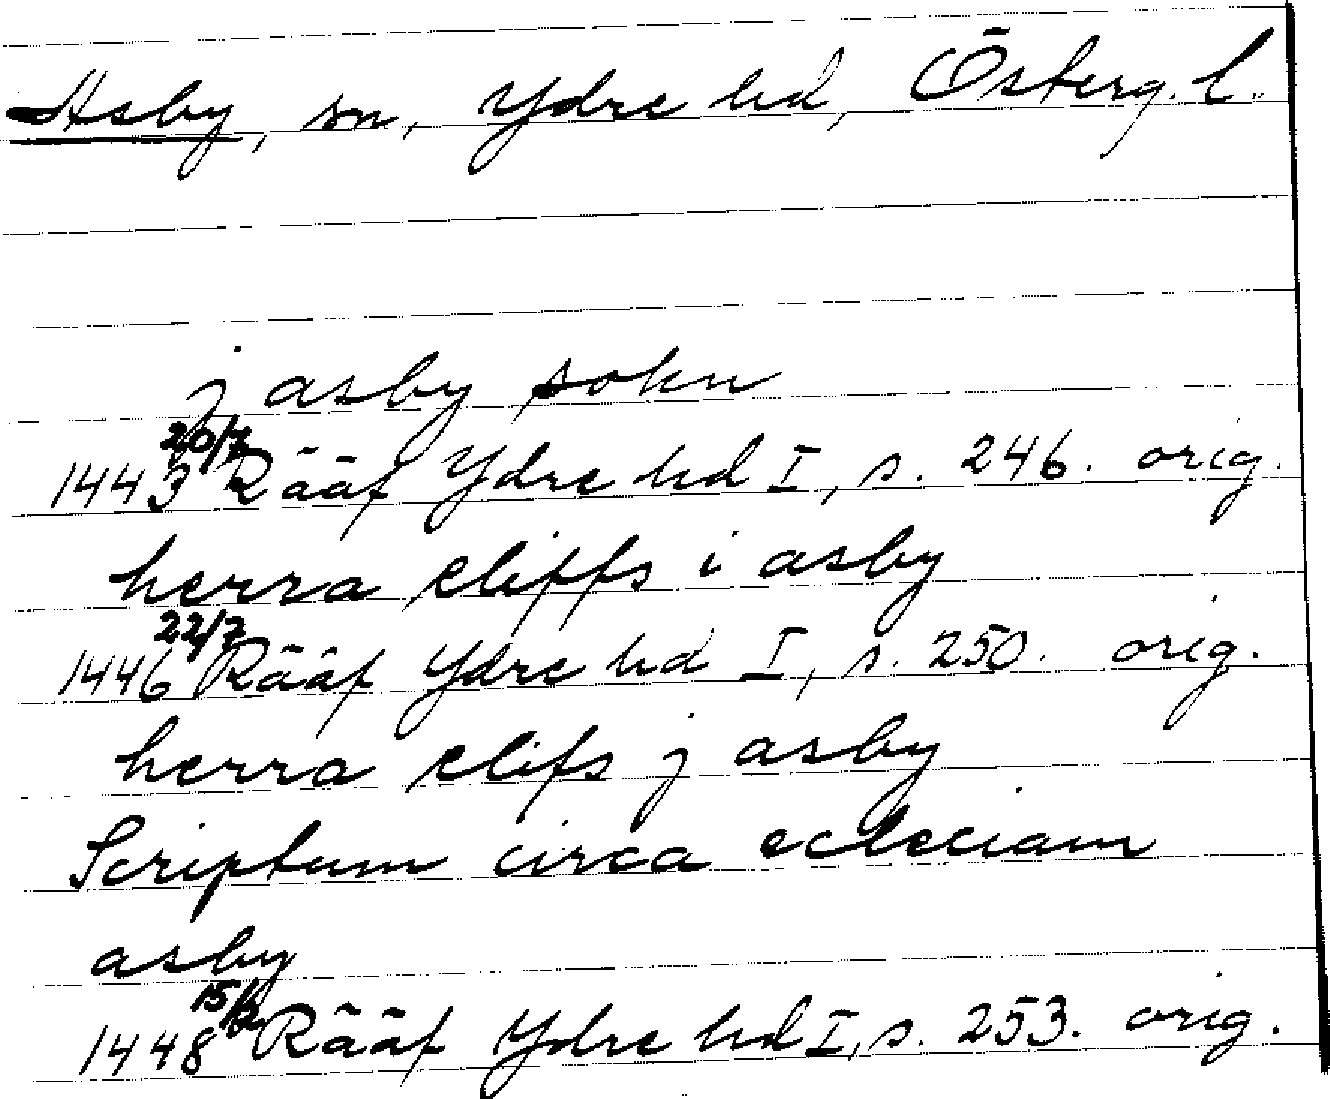 Asby, sn, Ydre hd, Österg. l.
j asby sokn
1443 20/7 Rääf Ydre hd I, s. 246. orig.
herra eliffs i asby
1446 22/7 Rääf Ydre hd I, s. 250. orig.
herra elifs j asby
Scriptum circa ecleciam
asby
1448 15/2 Rääf Ydre hd I, s. 253. orig.